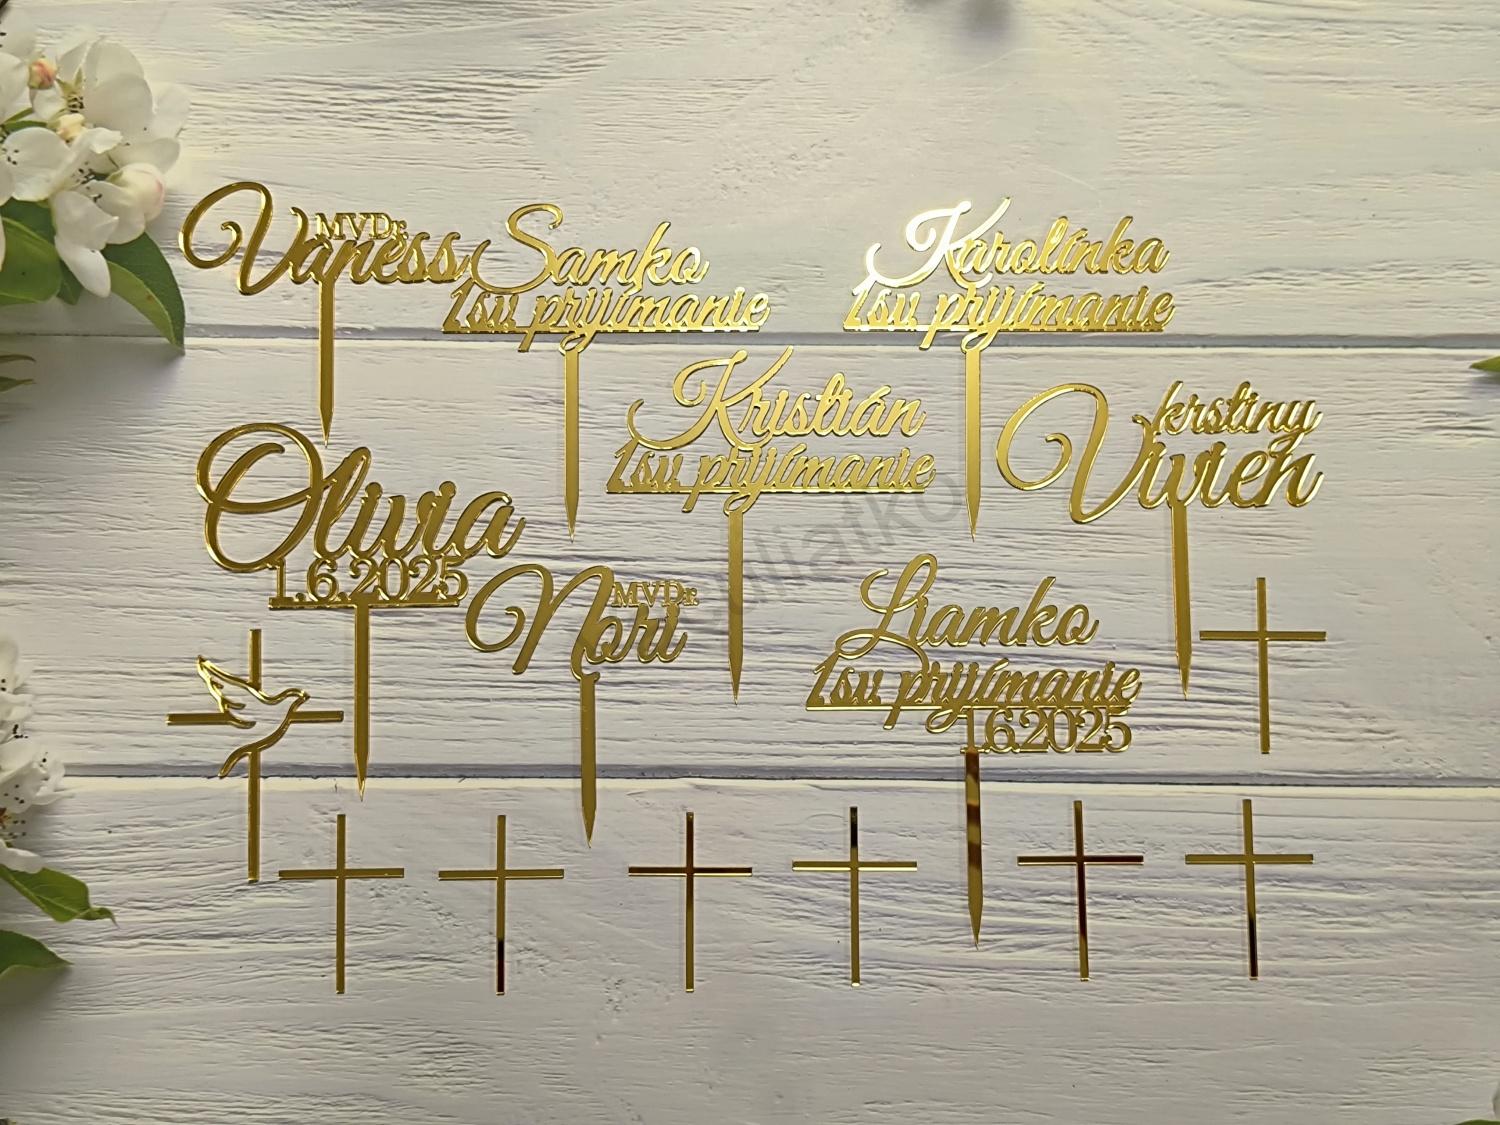 MVDr.
Vaness
Samko
1sv prijímanie
Karolínka
1sv prijímanie
Kristián
1sv prijímanie
krstiny
Vivien
Olivia
1.6.2025
MVDr.
Nori
Liamko
1sv prijímanie
1.6.2025
uliatko